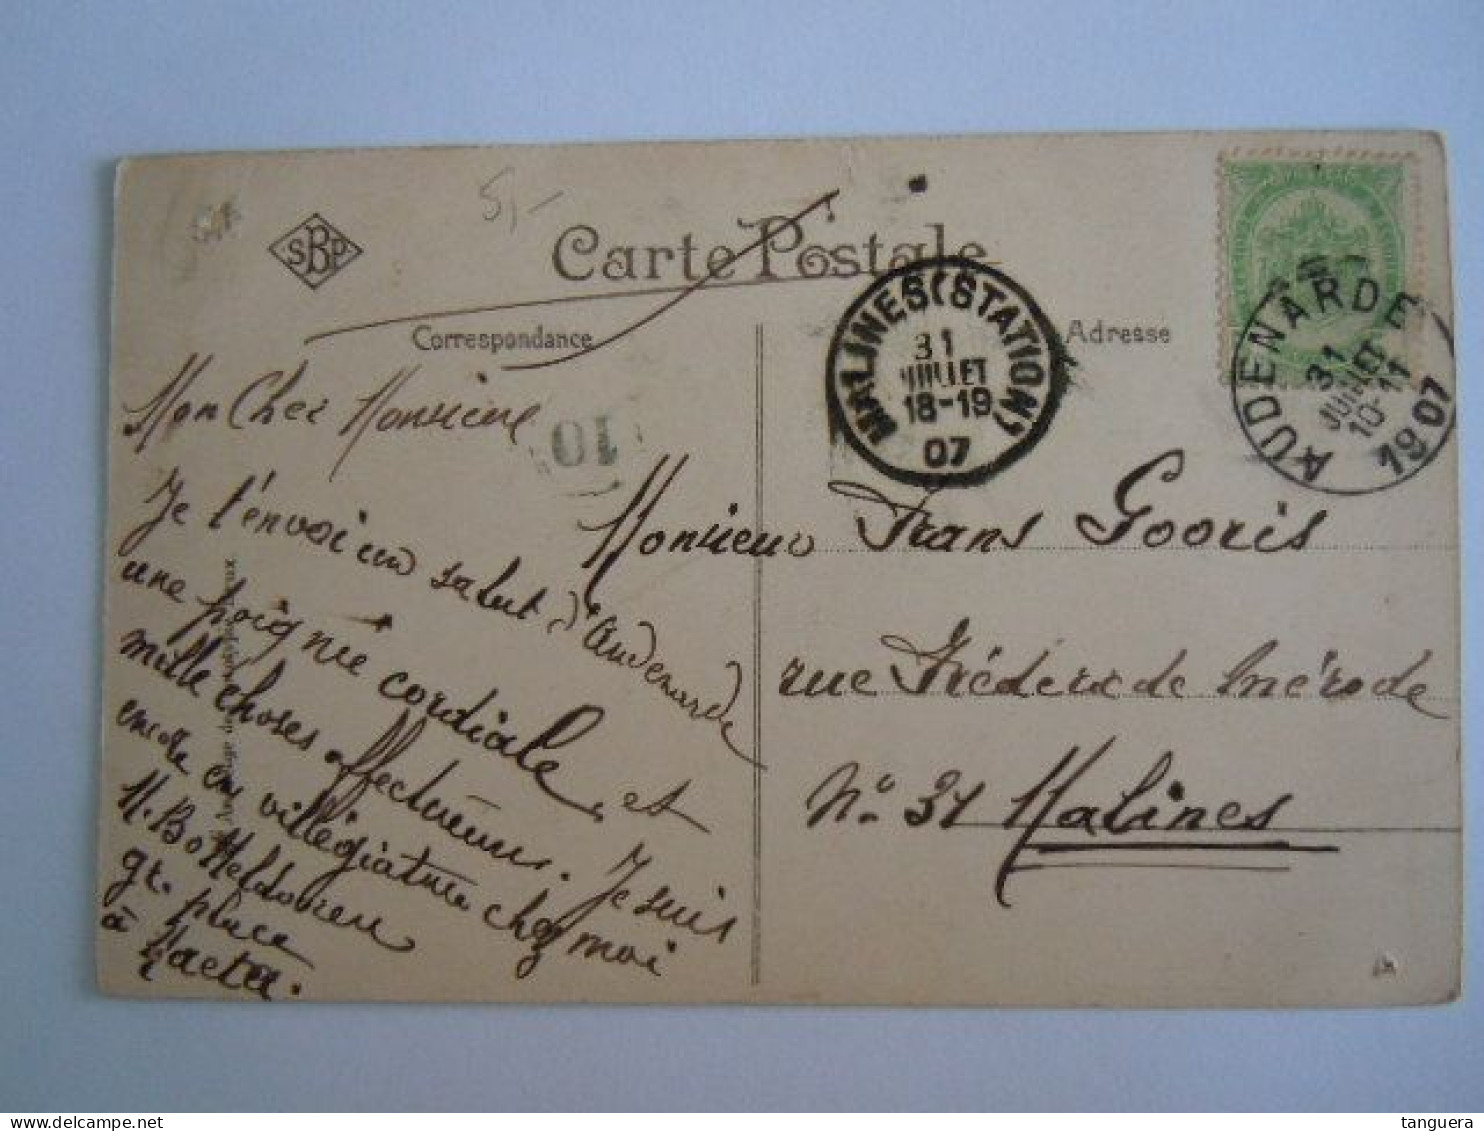 5,-
SBP
Carte Postale
Correspondance
Adresse
MALINES (STATION)
31
JUILLET
18-19
07
AUDENARDE
31
JUILLET
10-11
1907
10
Mon Cher Monsieur
Je t'envoi un salut d'Audenarde
une poignée cordiale et
mille choses affectueuses. Je suis
encore en villégiature chez moi
M. Botteldoren
gr. place
à
Monsieur Frans Gooris
rue Fréderic de Mérode
No. 31 Malines
tanguera